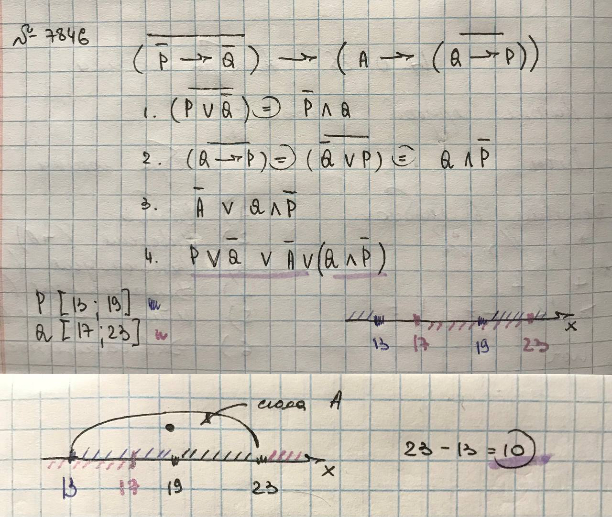 № 7846
(\overline{\overline{P} → \overline{Q}}) → (A → (\overline{Q → P}))
1. (\overline{P ∨ \overline{Q}}) = \overline{P} ∧ Q
2. (\overline{Q → P}) = (\overline{\overline{Q} ∨ P}) = Q ∧ \overline{P}
3. \overline{A} ∨ Q ∧ \overline{P}
4. P ∨ \overline{Q} ∨ \overline{A} ∨ (Q ∧ \overline{P})
P [13; 19]
Q [17; 23]
13 17 19 23 x
сюда A
13 17 19 23 x
23 - 13 = 10